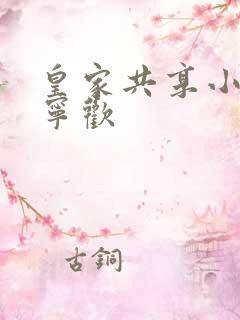 皇家共享小
寧歡
古銅